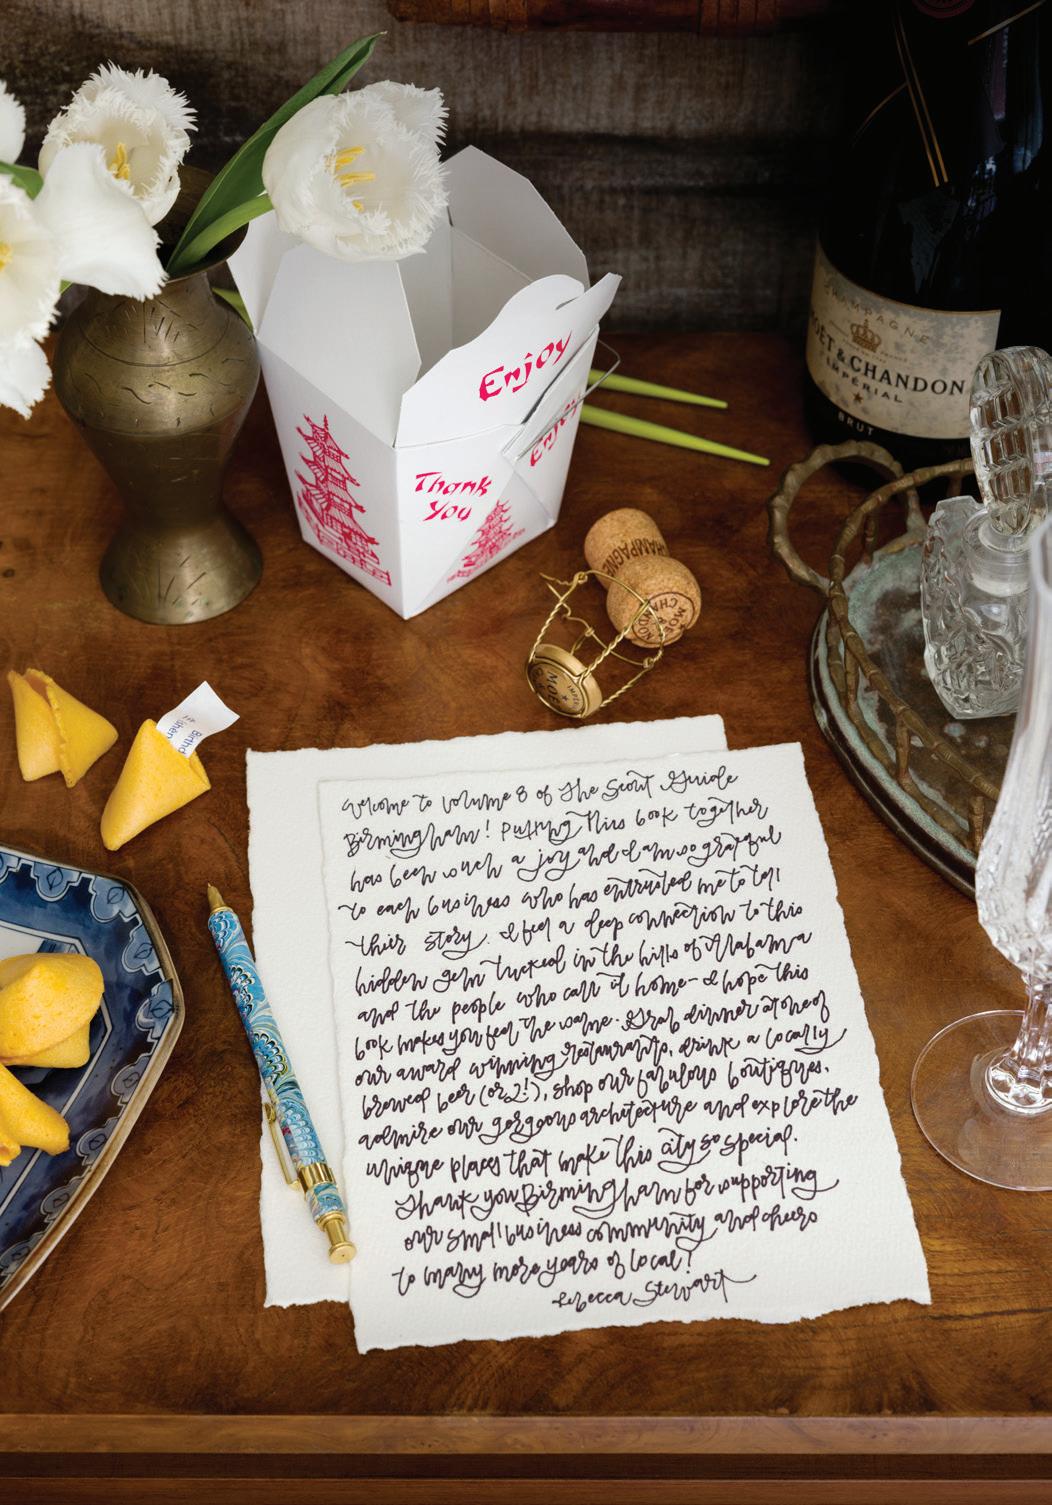 Enjoy
Enjoy
Thank
You
CHAMPAGNE
MOËT & CHANDON
IMPÉRIAL
BRUT
CHAMPAGNE
welcome to volume 8 of The Scout Guide
Birmingham! Putting this book together
has been such a joy and I am so grateful
to each business who has entrusted me to tell
their story. I feel a deep connection to this
hidden gem tucked in the hills of Alabama
and the people who call it home - I hope this
book makes you feel the same. Grab dinner at one of
our award winning restaurants, drink a locally
brewed beer (or 2!), shop our fabulous boutiques,
admire our gorgeous architecture and explore the
unique places that make this city so special.
Thank you Birmingham for supporting
our small business community and cheers
to many more years of local!
Rebecca Stewart